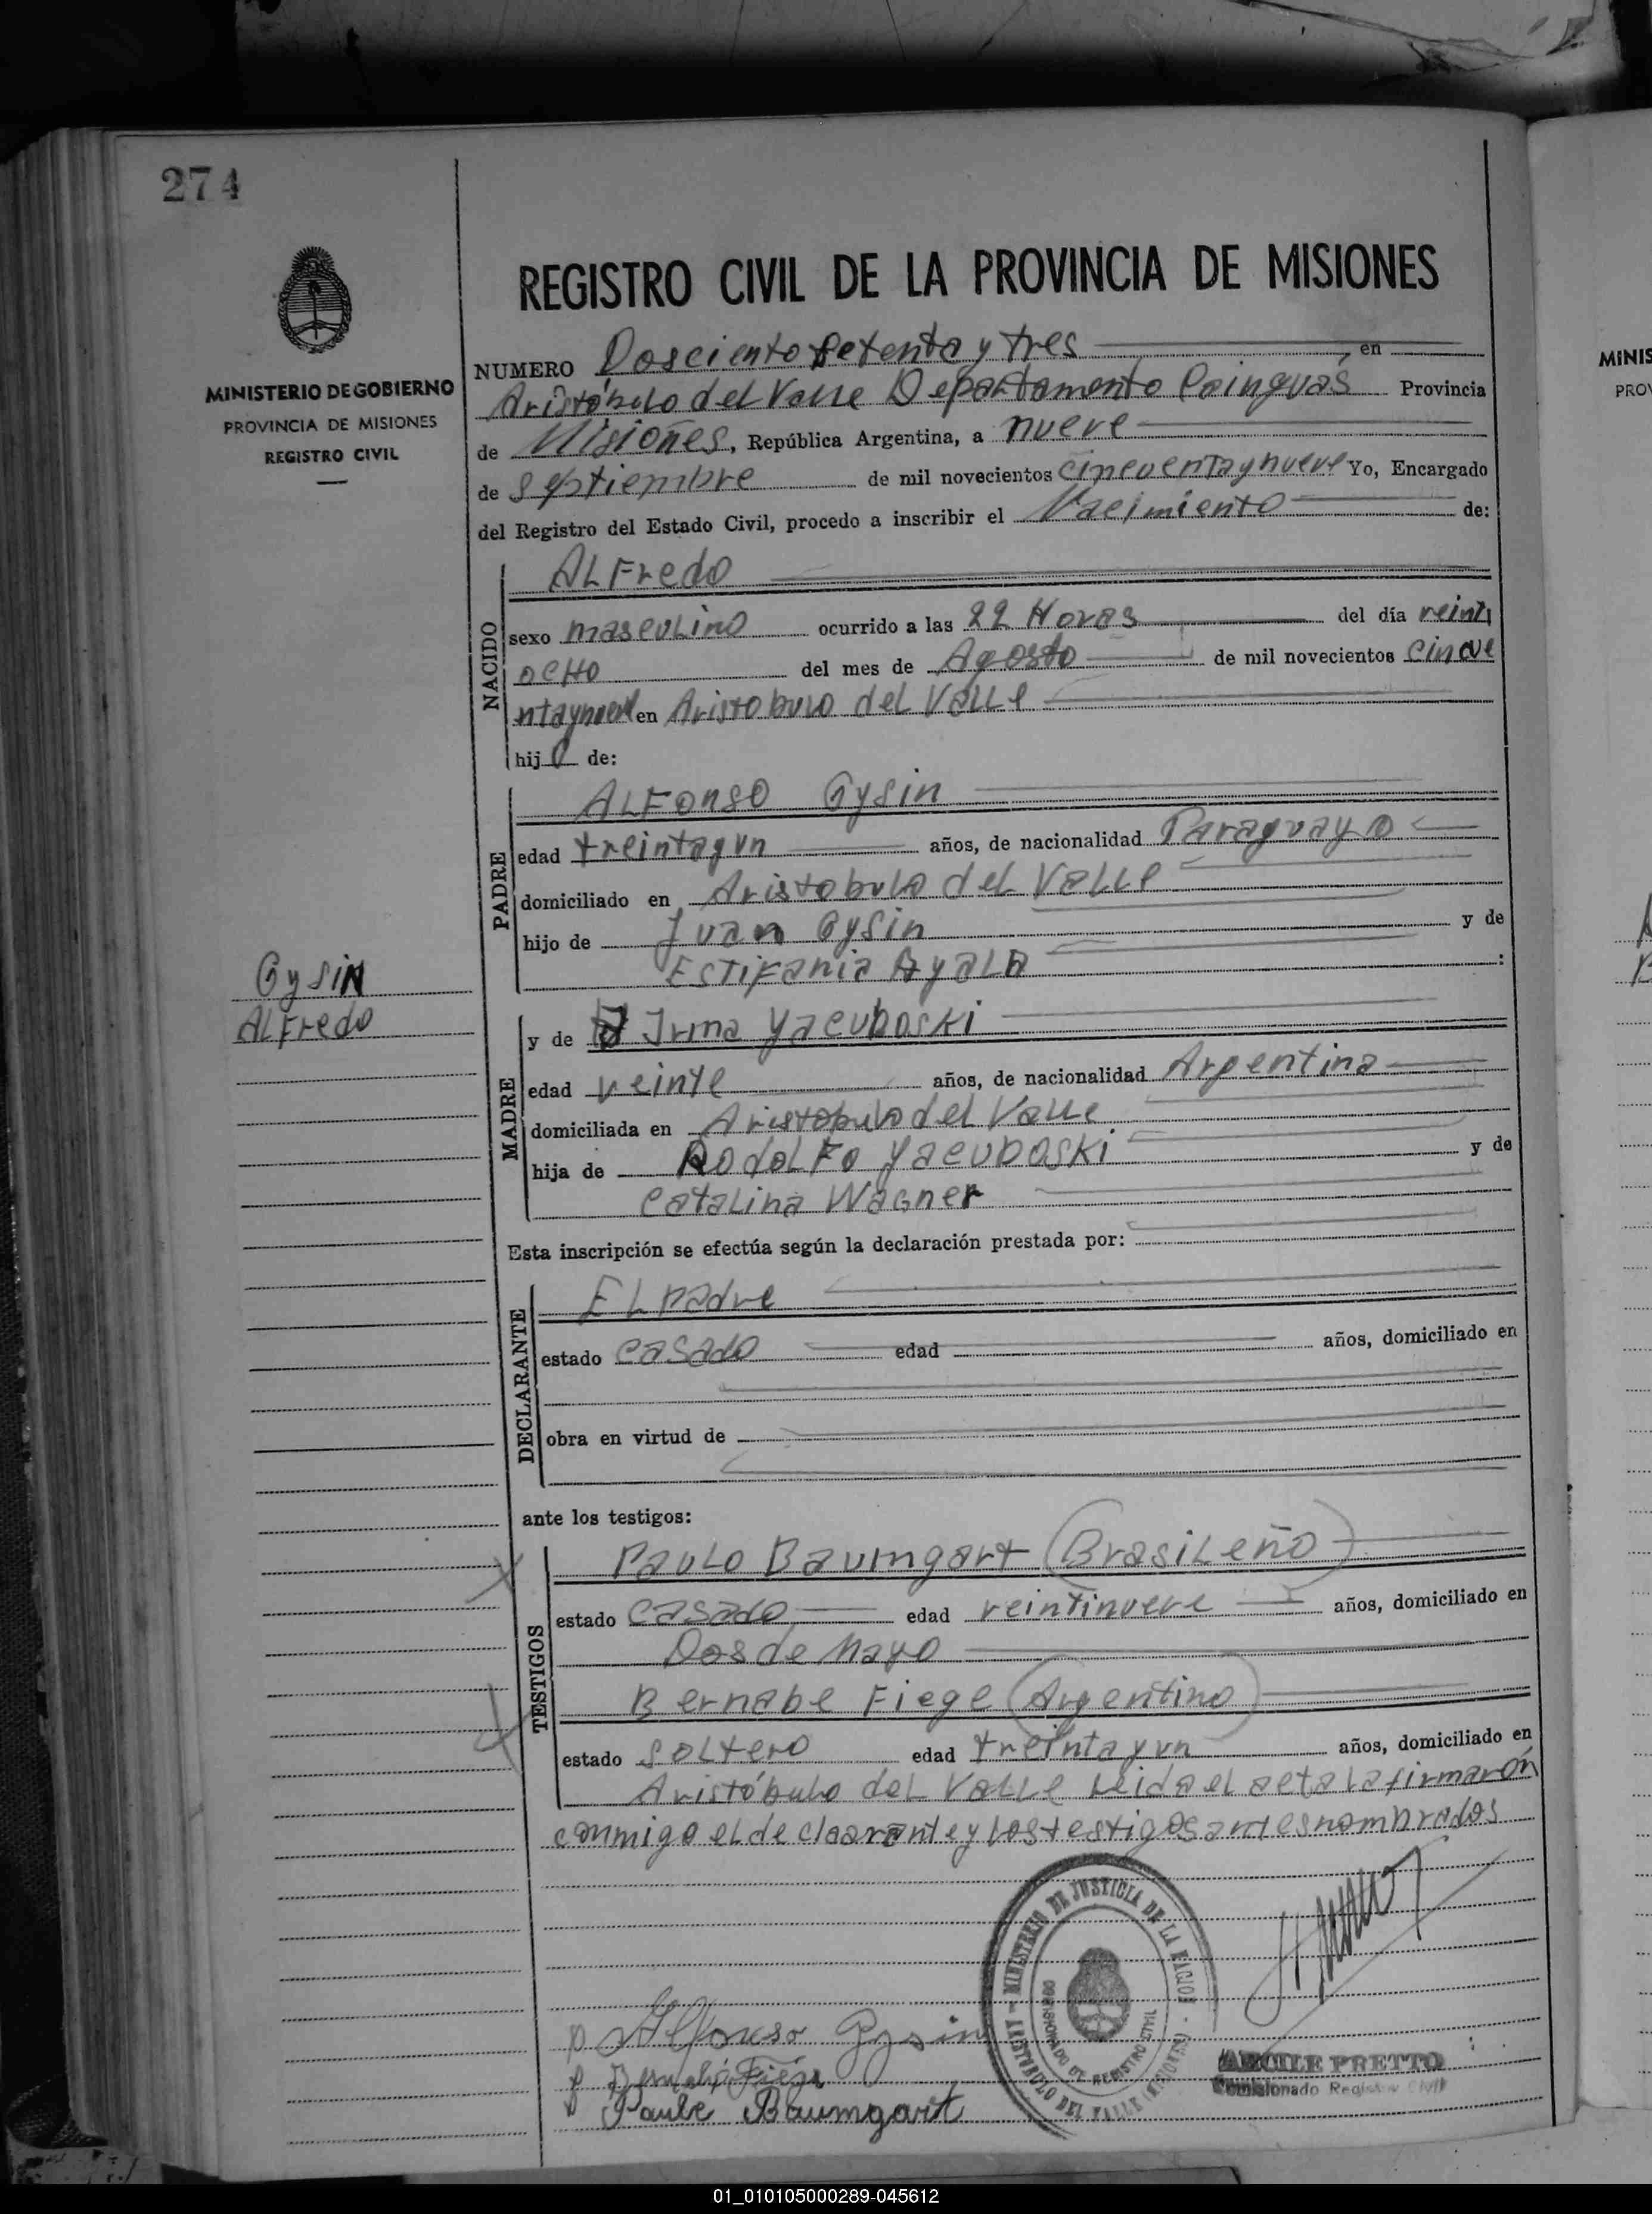 274
MINISTERIO DE GOBIERNO
PROVINCIA DE MISIONES
REGISTRO CIVIL
REGISTRO CIVIL DE LA PROVINCIA DE MISIONES
NUMERO Dosciento setenta y tres en
Aristóbulo del Valle Departamento Cainguás Provincia
de Misiones, República Argentina, a nueve
de Septiembre de mil novecientos cincuentaynueve Yo, Encargado
del Registro del Estado Civil, procedo a inscribir el Nacimiento de:
NACIDO
ALFredo
sexo masculino ocurrido a las 22 Horas del día veinti
ocho del mes de Agosto de mil novecientos cincue
ntaynueve en Aristobulo del Valle
hijo de:
PADRE
ALFonso Gysin
edad treintayun años, de nacionalidad Paraguayo
domiciliado en Aristobulo del Valle
hijo de Juan Gysin y de
Estifania Ayala :
Gysin
ALFredo
MADRE
y de Irma Yacuboski
edad veinte años, de nacionalidad Argentina
domiciliada en Aristobulo del Valle
hija de Rodolfo Yacuboski y de
Catalina Wagner
Esta inscripción se efectúa según la declaración prestada por:
DECLARANTE
El padre
estado casado edad años, domiciliado en
obra en virtud de
ante los testigos:
TESTIGOS
Paulo Baumgart (Brasileño)
estado casado edad veintinueve años, domiciliado en
Dos de Mayo
Bernabe Fiege (Argentino)
estado soltero edad treintayun años, domiciliado en
Aristóbulo del Valle Leida el acta la firmarón
conmigo el declaarante y los testigos antesnombrados
MINISTERIO DE JUSTICIA DE LA NACION
ARISTOBULO DEL VALLE (MISIONES)
COMISIONADO DE REGISTRO CIVIL
p Alfonso Gysin
Bernabé Fiége
Paulo Baumgart
ARCILE PRETTO
Comisionado Registro Civil
MINIS
PROV
01_010105000289-045612